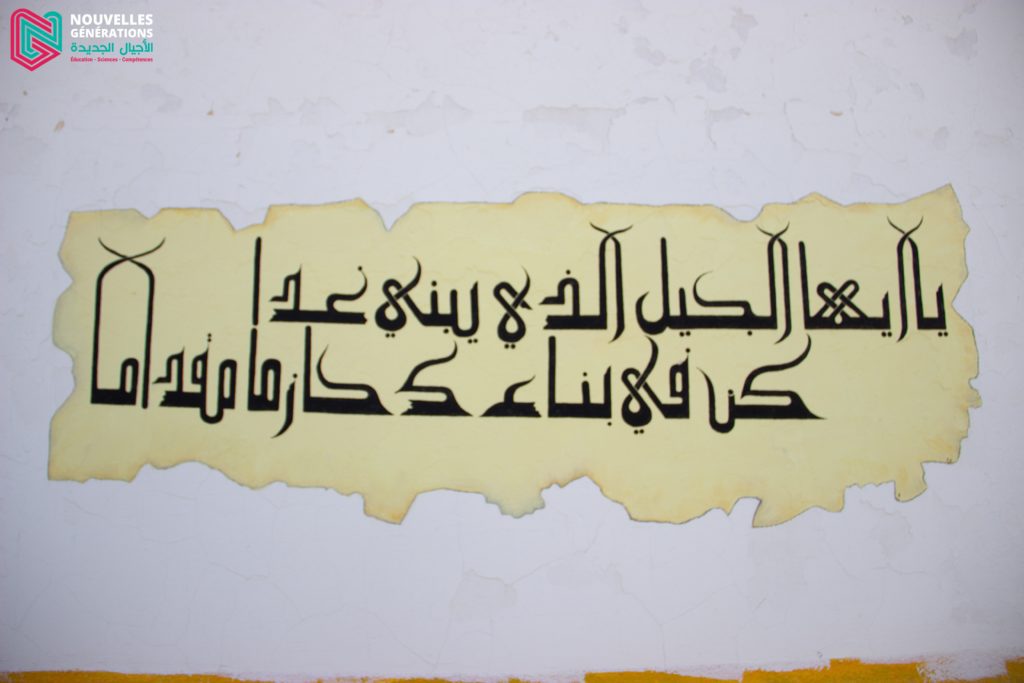 NOUVELLES
GÉNÉRATIONS
الأجيال الجديدة
Éducation - Sciences - Compétences
يا أيها الجيل الذي يبني غدا
كن في بناءك حازما مقداما